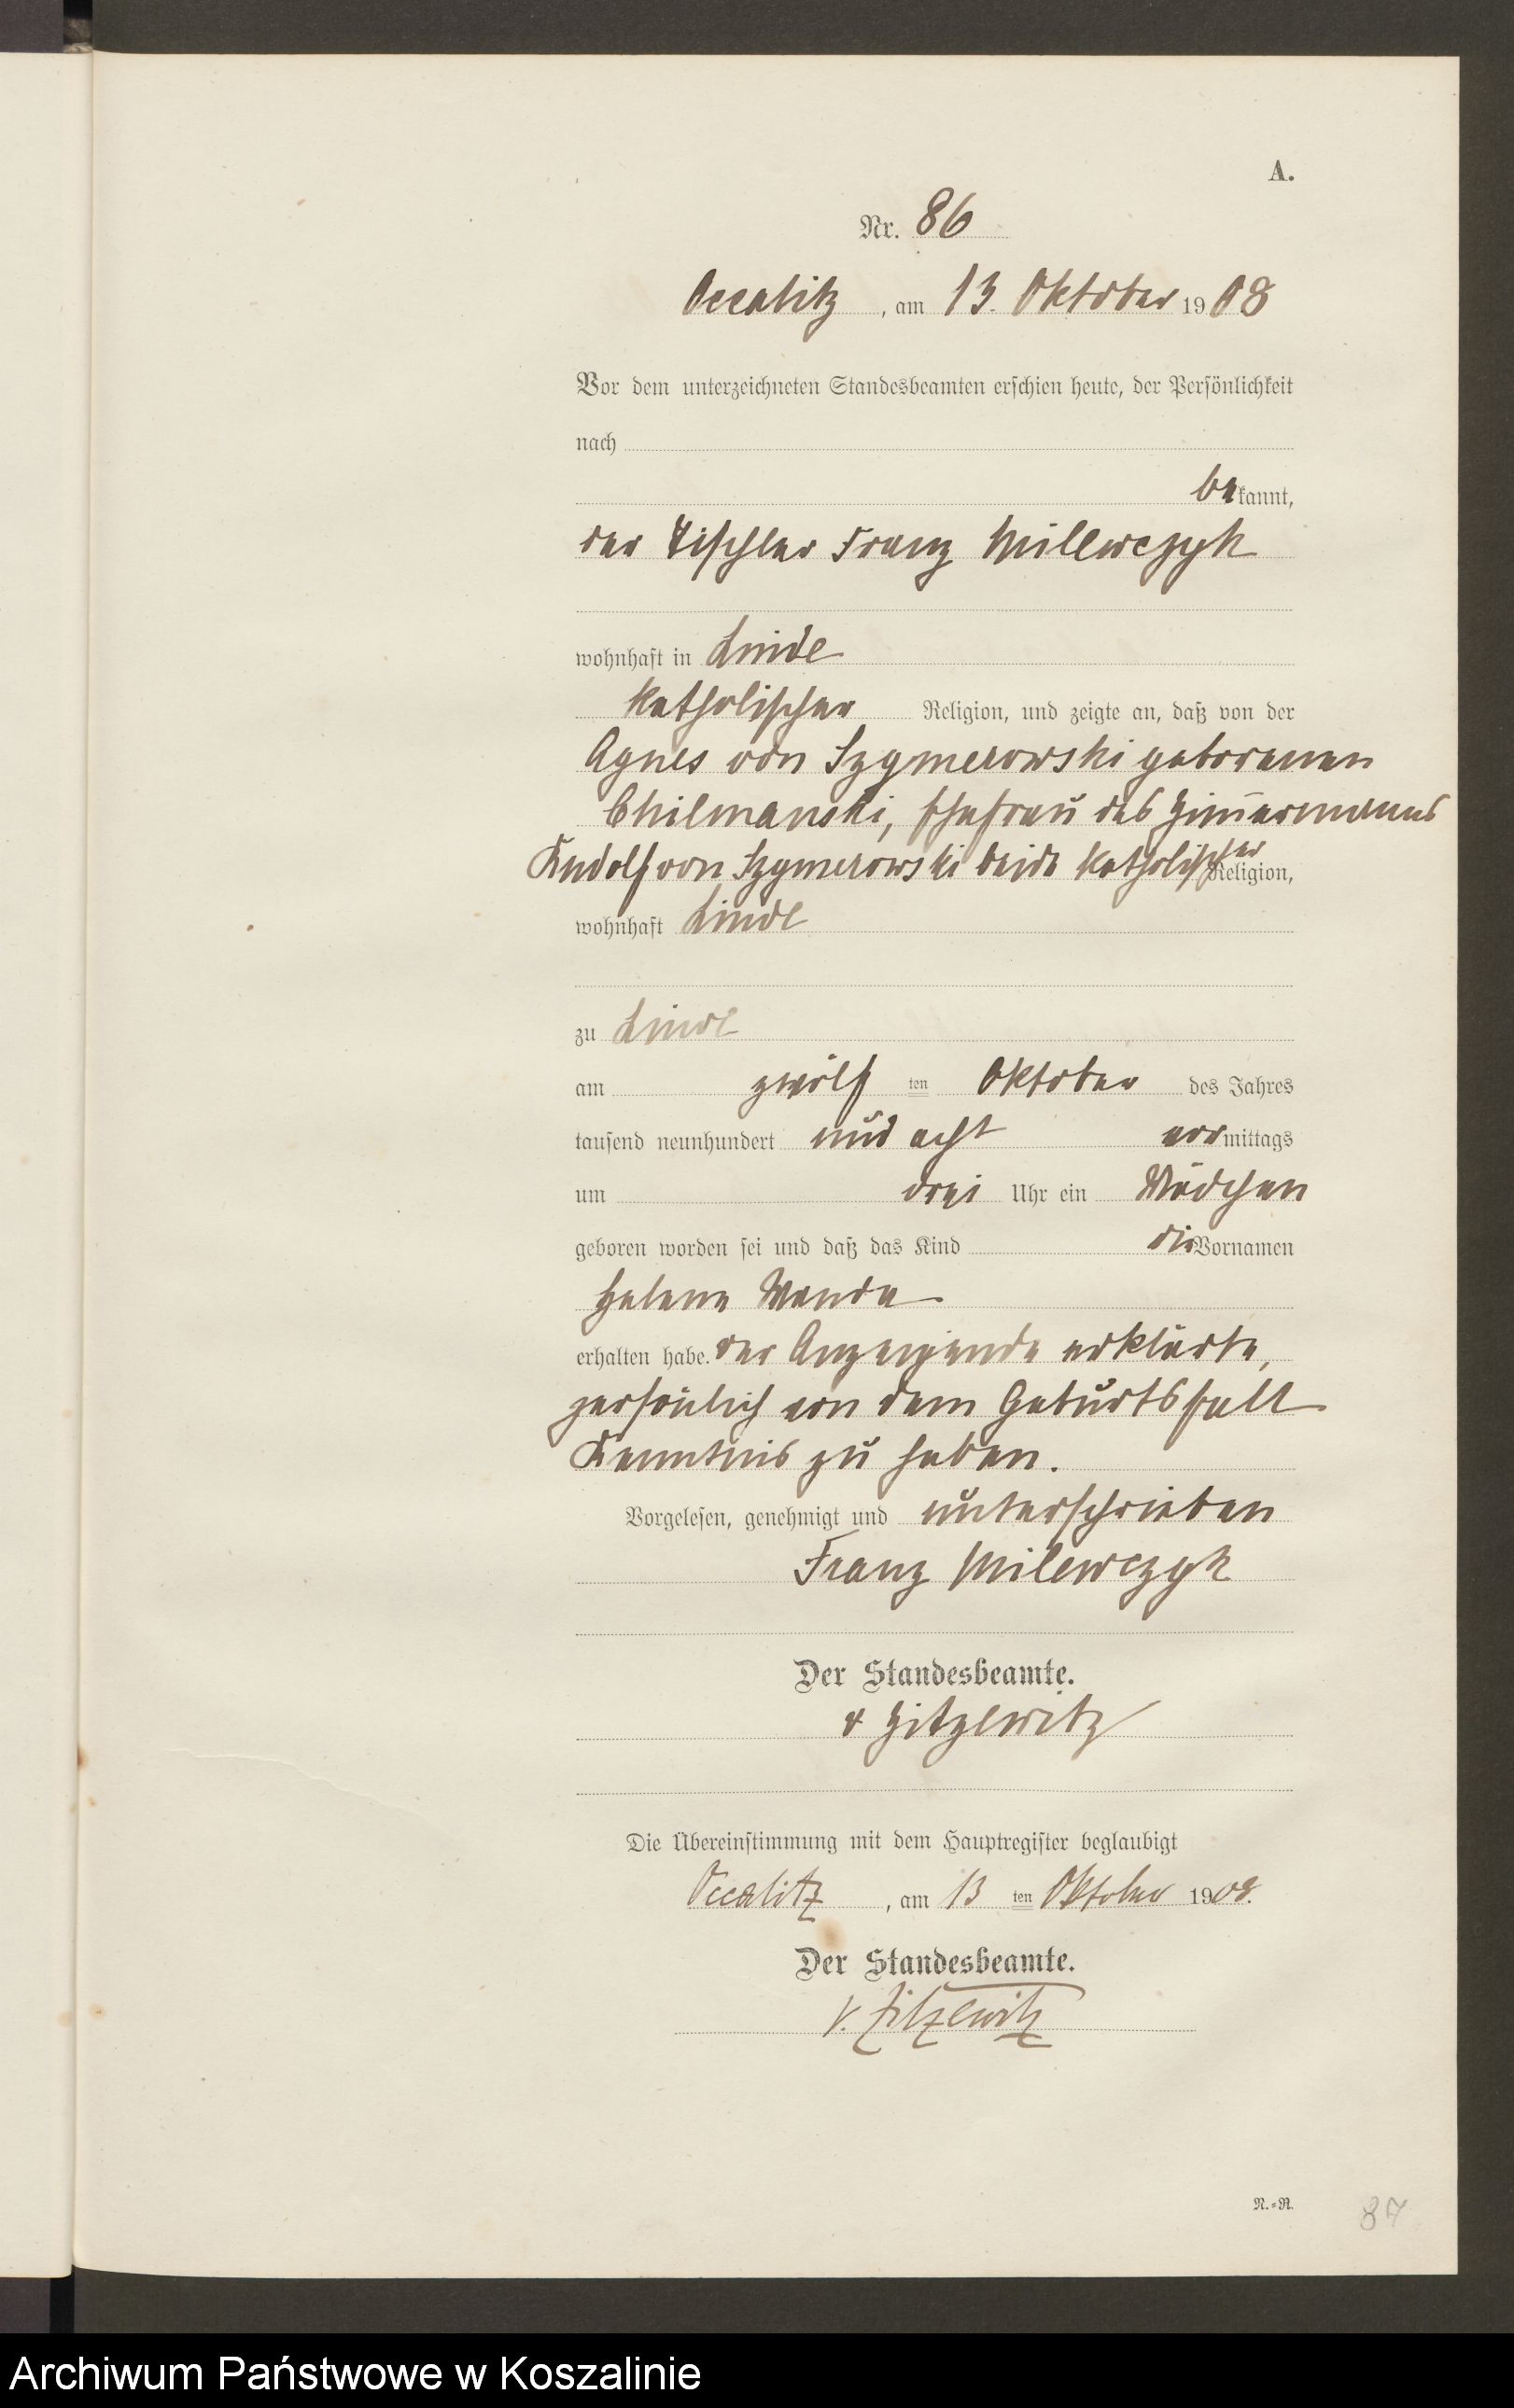 A.
Nr. 86
Occalitz, am 13. Oktober 1908
Vor dem unterzeichneten Standesbeamten erschien heute, der Persönlichkeit
nach
bekannt,
der Tischler Franz Milewczyk
wohnhaft in Linde
katholischer Religion, und zeigte an, daß von der
Agnes von Szymerowski geborenen
Chilmanski, Ehefrau des Zimmermanns
Rudolf von Szymerowski beide katholischer Religion,
wohnhaft Linde
zu Linde
am zwölften Oktober des Jahres
tausend neunhundert und acht vormittags
um drei Uhr ein Mädchen
geboren worden sei und daß das Kind die Vornamen
Helene Wanda
erhalten habe. der Anzeigende erklärte,
persönlich von dem Geburtsfall
Kenntnis zu haben.
Vorgelesen, genehmigt und unterschrieben
Franz Milewczyk
Der Standesbeamte.
v Zitzewitz
Die Übereinstimmung mit dem Hauptregister beglaubigt
Occalitz, am 13 ten Oktober 1908.
Der Standesbeamte.
v. Zitzewitz
N.=R.
87
Archiwum Państwowe w Koszalinie